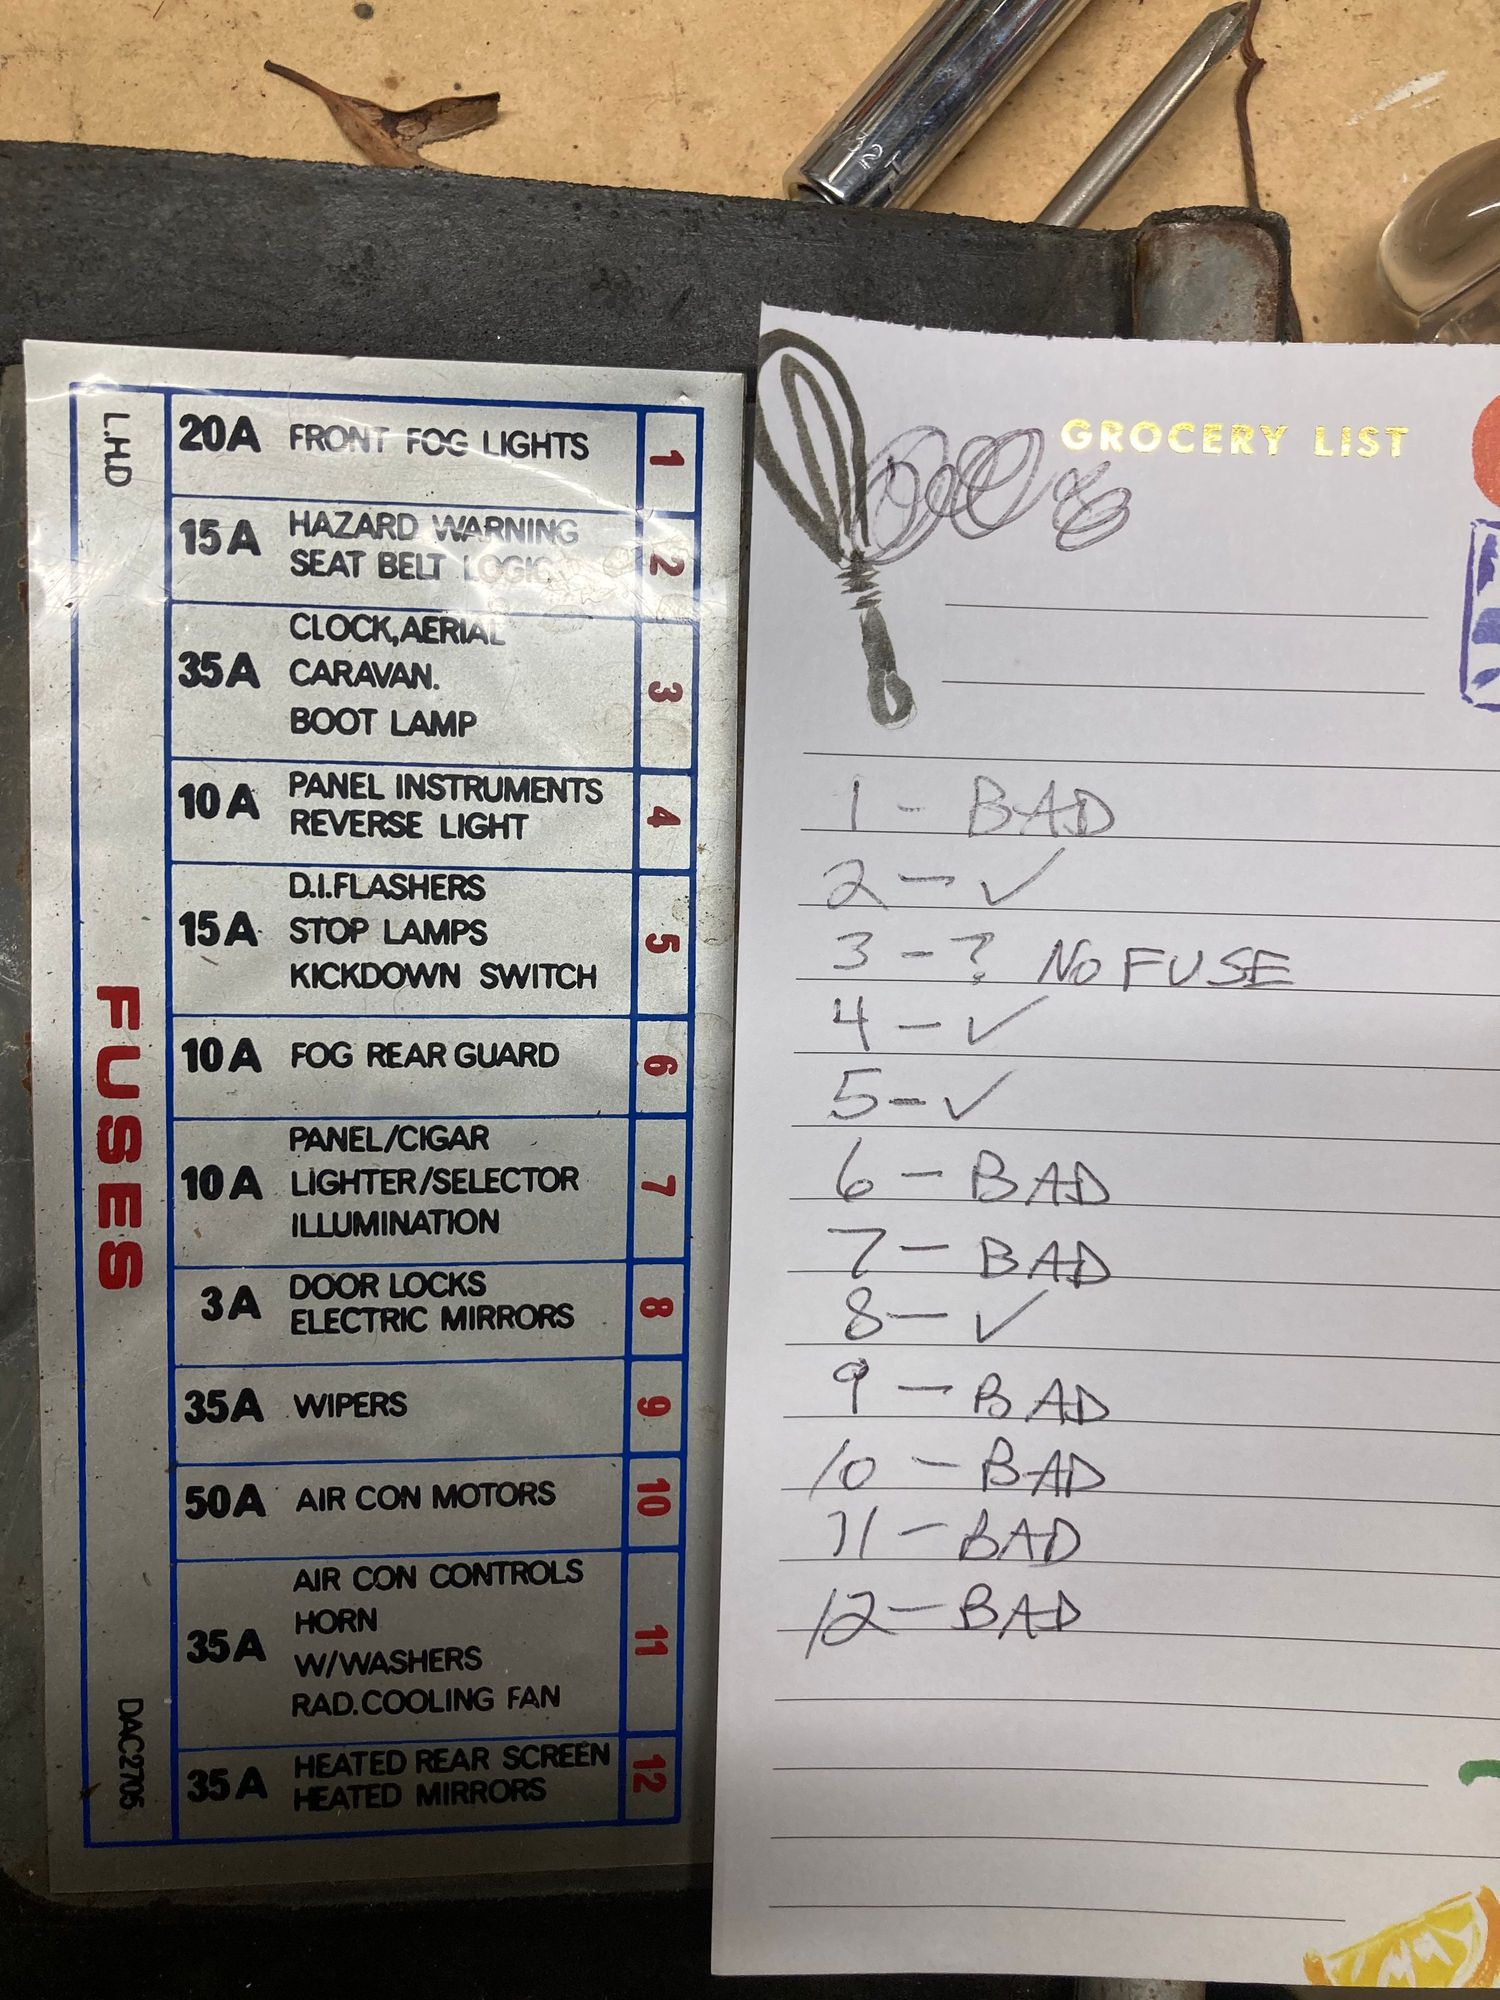 L.H.D
FUSES
DAC2705
20A FRONT FOG LIGHTS 1
15A HAZARD WARNING 2
SEAT BELT LOGIC
CLOCK,AERIAL
35A CARAVAN. 3
BOOT LAMP
10A PANEL INSTRUMENTS 4
REVERSE LIGHT
D.I.FLASHERS
15A STOP LAMPS 5
KICKDOWN SWITCH
10A FOG REAR GUARD 6
PANEL/CIGAR
10A LIGHTER/SELECTOR 7
ILLUMINATION
3A DOOR LOCKS 8
ELECTRIC MIRRORS
35A WIPERS 9
50A AIR CON MOTORS 10
AIR CON CONTROLS
HORN
35A W/WASHERS 11
RAD.COOLING FAN
35A HEATED REAR SCREEN 12
HEATED MIRRORS
GROCERY LIST
1 - BAD
2 - ✓
3 - ? NO FUSE
4 - ✓
5 - ✓
6 - BAD
7 - BAD
8 - ✓
9 - BAD
10 - BAD
11 - BAD
12 - BAD